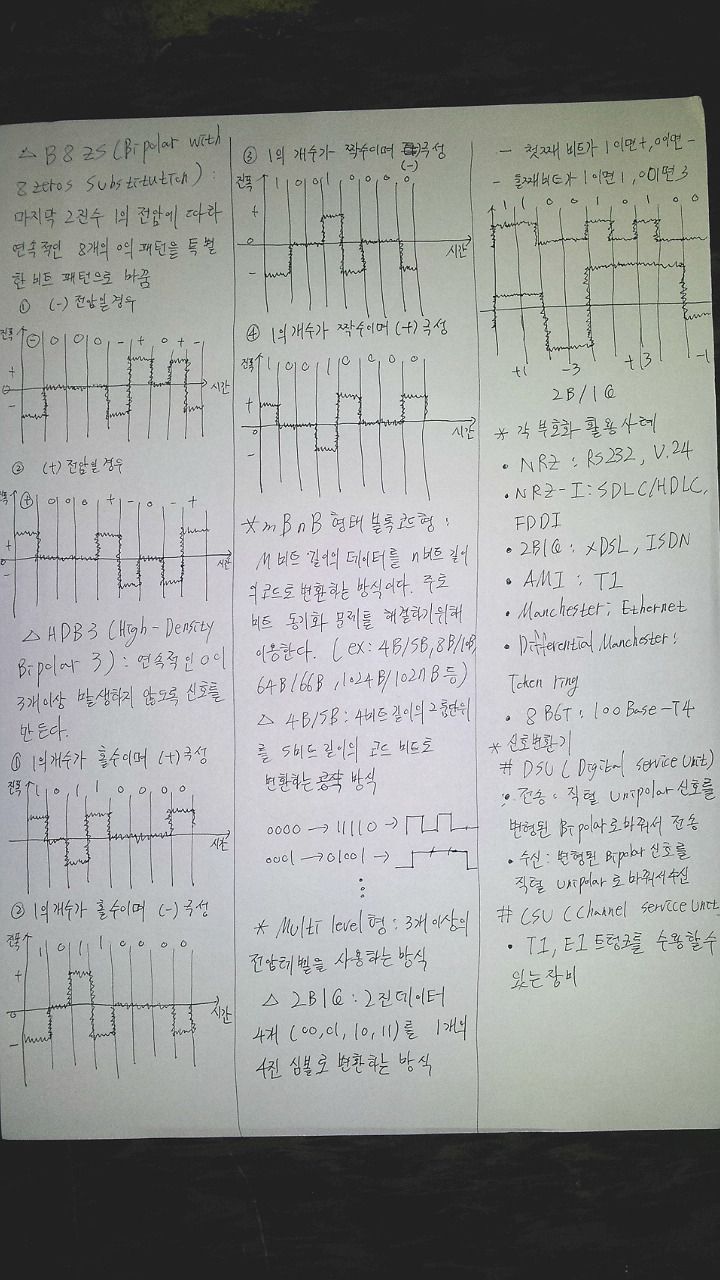 △ B8ZS (Bipolar with
8 zeros Substitution) :
마지막 2진수 1의 전압에 따라
연속적인 8개의 0의 패턴을 특별
한 비트 패턴으로 바꿈
① (-) 전압일 경우
진폭
(-) 0 0 0 - + 0 + -
+
0
-
시간
② (+) 전압일 경우
진폭
(+) 0 0 0 + - 0 - +
+
0
-
시간
△ HDB3 (High-Density
Bipolar 3) : 연속적인 0이
3개이상 발생하지 않도록 신호를
만든다.
① 1의 개수가 홀수이며 (+)극성
진폭
1 0 1 1 0 0 0 0
+
0
-
시간
② 1의 개수가 홀수이며 (-) 극성
진폭
1 0 1 1 0 0 0 0
+
0
-
시간
③ 1의 개수가 짝수이며 극성
(-)
진폭
1 0 0 1 0 0 0 0
+
0
-
시간
④ 1의 개수가 짝수이며 (+) 극성
진폭
1 0 0 1 0 0 0 0
+
0
-
시간
* mBnB 형태 블록코드형 :
M비트 길이의 데이터를 n비트 길이
의 코드로 변환하는 방식이다. 주로
비트 동기화 문제를 해결하기위해
이용한다. (ex: 4B/5B, 8B/10B,
64B/66B, 1024B/1027B 등)
△ 4B/5B : 4비트 길이의 2진단위
를 5비트 길이의 코드 비트로
변환하는 방식
0000 → 11110 →
0001 → 01001 →
⋮
* Multi level형 : 3개 이상의
전압레벨을 사용하는 방식
△ 2B1Q : 2진 데이터
4개 (00, 01, 10, 11)를 1개의
4진 심볼로 변환하는 방식
- 첫째 비트가 1이면 +, 0이면 -
- 둘째비트가 1이면 1, 0이면 3
1 1 0 0 1 0 0
+1 -3 +3 -1
2B/1Q
* 각 부호화 활용사례
• NRZ : RS232, V.24
• NRZ-I : SDLC/HDLC,
FDDI
• 2B1Q : xDSL, ISDN
• AMI : T1
• Manchester : Ethernet
• Differential Manchester :
Token ring
• 8B6T : 100Base-T4
* 신호변환기
# DSU (Digital service Unit)
• 전송 : 직렬 Unipolar 신호를
변형된 Bipolar로 바꿔서 전송
• 수신 : 변형된 Bipolar 신호를
직렬 Unipolar로 바꿔서 수신
# CSU (Channel service Unit
• T1, E1 트렁크를 수용할 수
있는 장비